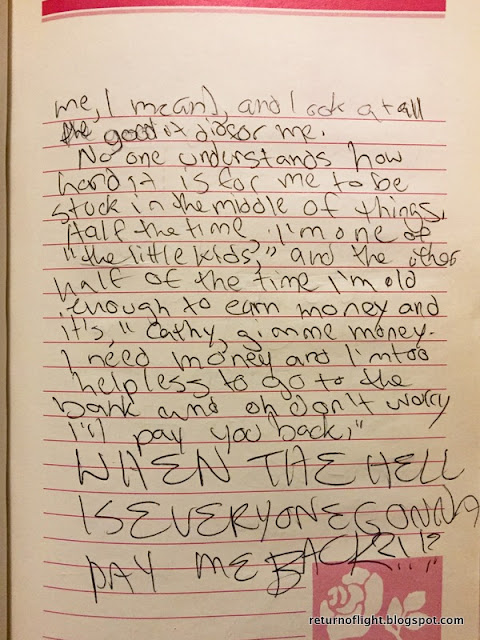 me, I mean), and look at all
the good it did for me.
No one understands how
hard it is for me to be
stuck in the middle of things.
Half the time, I'm one of
"the little kids," and the other
half of the time I'm old
enough to earn money and
it's "Cathy, gimme money.
I need money and I'm too
helpless to go to the
bank and oh don't worry
I'll pay you back,"
WHEN THE HELL
IS EVERYONE GONNA
PAY ME BACK?!!?
returnoflight.blogspot.com